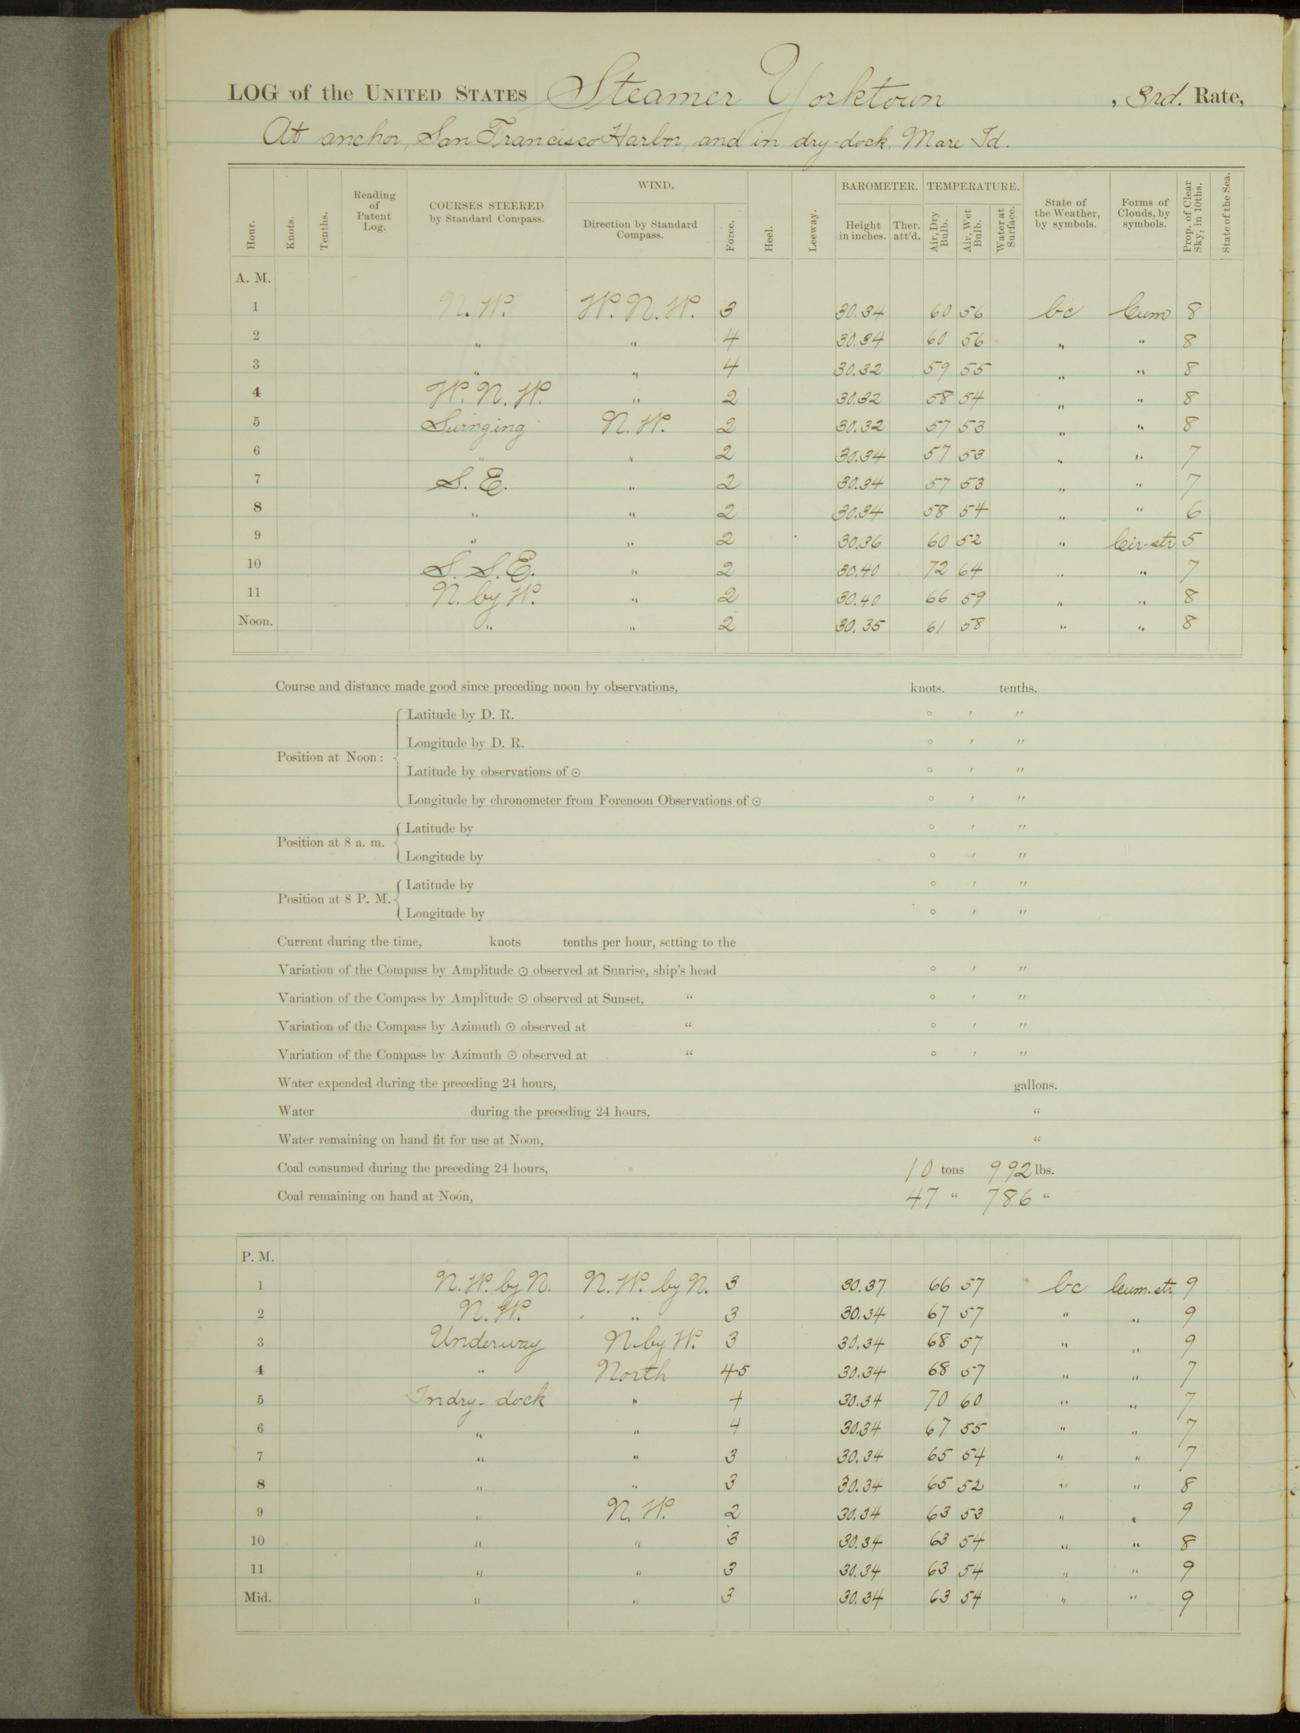 LOG of the UNITED STATES Steamer Yorktown , 3rd. Rate,
At anchor, San Francisco Harbor, and in dry-dock, Mare Id.
Hour. Knots. Tenths. Reading of Patent Log. COURSES STEERED by Standard Compass. WIND. Direction by Standard Compass. Force. Heel. Leeway. BAROMETER. Height in inches. Ther. att'd. TEMPERATURE. Air, Dry Bulb. Air, Wet Bulb. Water at Surface. State of the Weather, by symbols. Forms of Clouds, by symbols. Prop. of Clear Sky, in 10ths. State of the Sea.
A. M.
1 N.W. W.N.W. 3 30.34 60 56 bc Cum 8
2 " " 4 30.34 60 56 " " 8
3 " " 4 30.32 59 55 " " 8
4 W.N.W. " 2 30.32 58 54 " " 8
5 Swinging N.W. 2 30.32 57 53 " " 8
6 " " 2 30.34 57 53 " " 7
7 S.E. " 2 30.34 57 53 " " 7
8 " " 2 30.34 58 54 " " 6
9 " " 2 30.36 60 52 " Cir-str 5
10 S.S.E. " 2 30.40 72 64 " " 7
11 N. by W. " 2 30.40 66 59 " " 8
Noon. " " 2 30.35 61 58 " " 8
Course and distance made good since preceding noon by observations, knots. tenths.
Position at Noon: Latitude by D. R. ° ' "
Longitude by D. R. ° ' "
Latitude by observations of ☉ ° ' "
Longitude by chronometer from Forenoon Observations of ☉ ° ' "
Position at 8 a. m. Latitude by ° ' "
Longitude by ° ' "
Position at 8 P. M. Latitude by ° ' "
Longitude by ° ' "
Current during the time, knots tenths per hour, setting to the
Variation of the Compass by Amplitude ☉ observed at Sunrise, ship's head ° ' "
Variation of the Compass by Amplitude ☉ observed at Sunset, " ° ' "
Variation of the Compass by Azimuth ☉ observed at " ° ' "
Variation of the Compass by Azimuth ☉ observed at " ° ' "
Water expended during the preceding 24 hours, gallons.
Water during the preceding 24 hours, "
Water remaining on hand fit for use at Noon, "
Coal consumed during the preceding 24 hours, 10 tons 992 lbs.
Coal remaining on hand at Noon, 47 " 786 "
P. M.
1 N.W. by N. N.W. by N. 3 30.37 66 57 bc Cum. str 9
2 N.W. " 3 30.34 67 57 " " 9
3 Underway N. by W. 3 30.34 68 57 " " 9
4 " North 4-5 30.34 68 57 " " 7
5 In dry-dock " 4 30.34 70 60 " " 7
6 " " 4 30.34 67 55 " " 7
7 " " 3 30.34 65 54 " " 7
8 " " 3 30.34 65 52 " " 8
9 " N.W. 2 30.34 63 53 " " 9
10 " " 3 30.34 63 54 " " 8
11 " " 3 30.34 63 54 " " 9
Mid. " " 3 30.34 63 54 " " 9